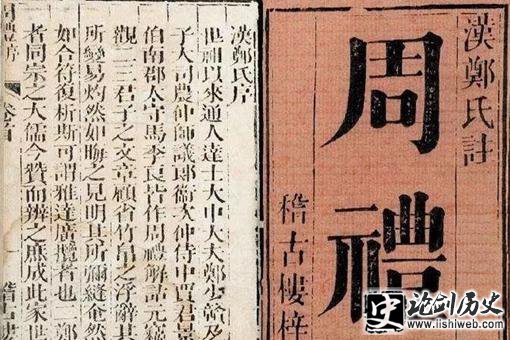 漢鄭氏註
周禮
稽古樓梓
漢鄭氏序
世祖以來通人達士大中大夫鄭少贛及
子大司農仲師議郎衛次仲侍中賈君景
伯南郡太守馬季長皆作周禮解詁元竊
觀二三君子之文章顧省竹帛之浮辭其
所變易灼然如晦之見明其所彌縫奄然
如合符復析斯可謂雅達廣攬者也二鄭
者同宗之大儒今贊而辨之庶成此家世
周禮序 卷首 一 稽古樓
史 论剑历史
www.lishiweb.com